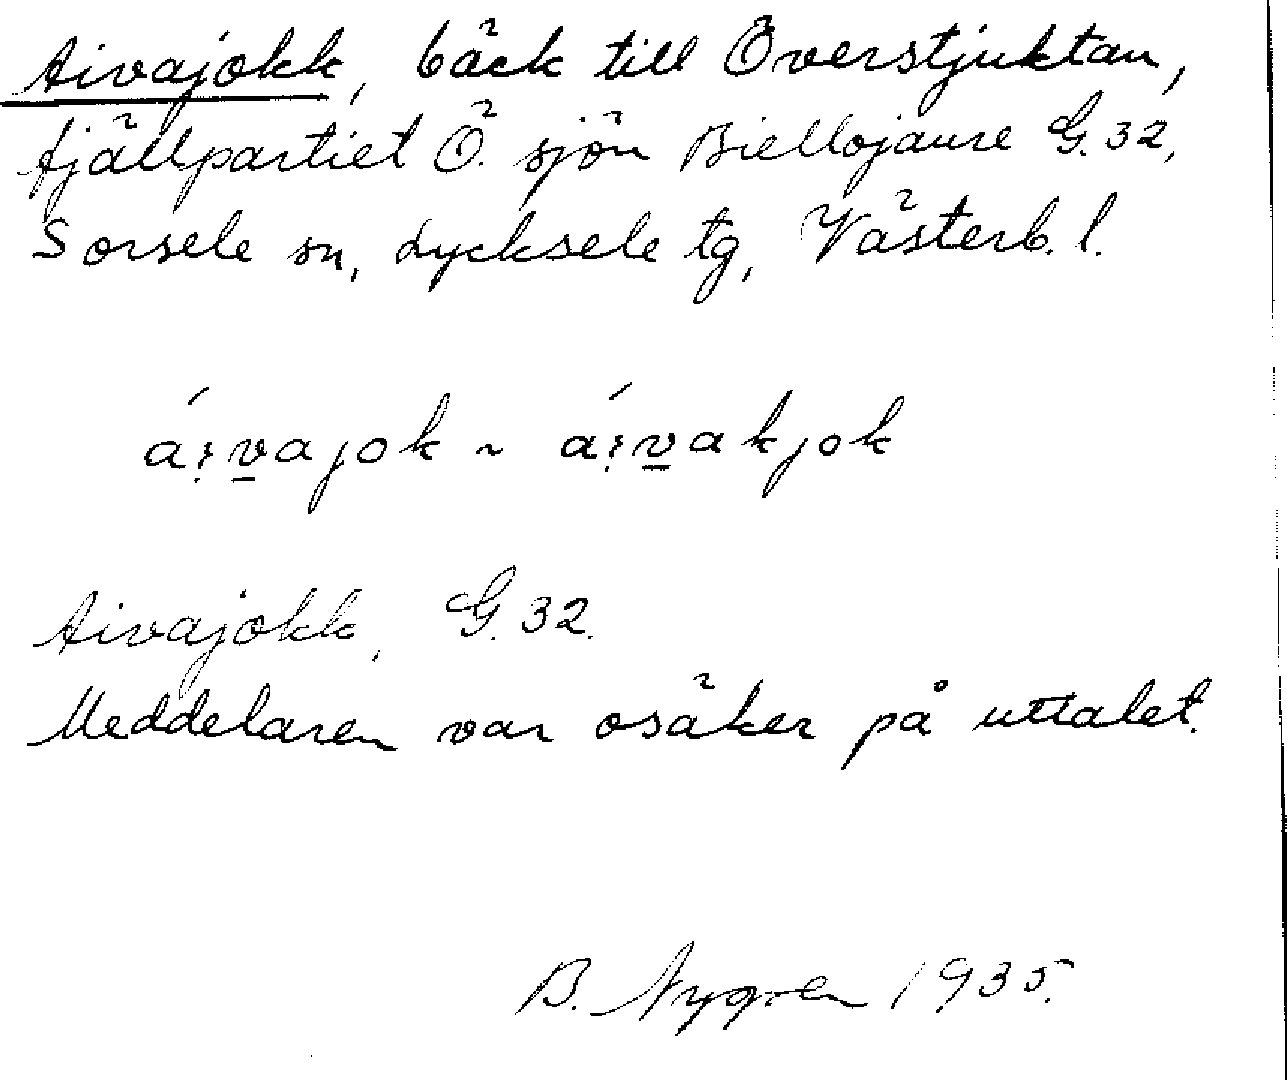 Aivajokk, bäck till Överstjuktan,
fjällpartiet Ö. sjön Biellojaure G.32,
Sorsele sn, Lycksele tg, Västerb. l.
á:vajok ~ á:vakjok
Aivajokk, G.32.
Meddelaren var osäker på uttalet.
B. Nygren 1935.